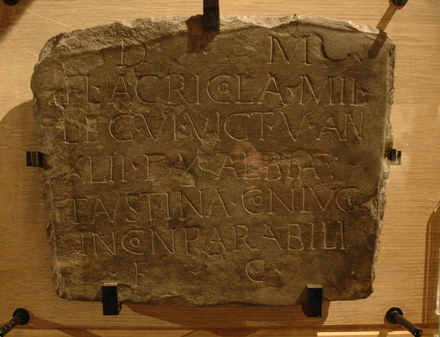 D M
FL·AGRICOLA·MIL
LEG·VI·VICT·V·AN
XLII·D·X·ALBIA
FAVSTINA·CONIVGI
INCONPARABILI
F C